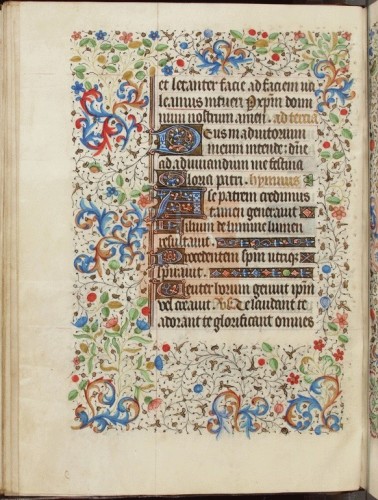 et letanter facie ad faciem ua
leamus intueri xp̄m domi
num nostrum amen. ad tercia
Deus in adiutorium
meum intende: dn̄e
ad adiuuandum me festina
Gloria patri. hymnus
Te patrem credimus
tu natum generauit
filium de lumine lumen
Procedentem spm̄
spirauit.
genuit ip̄m
vel creauit te laudant te
adorant te glorificant omnes